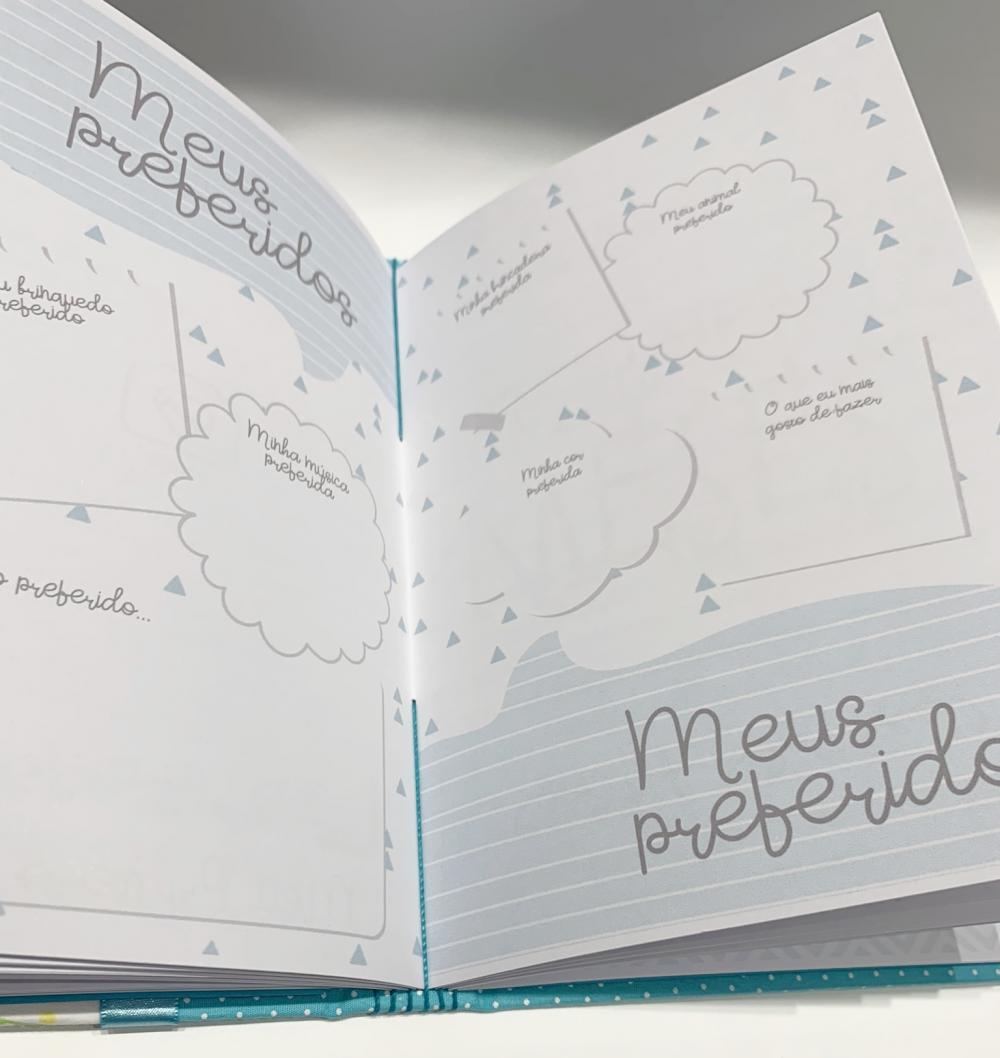 Meus
preferidos
brinquedo
preferido
Minha música
preferida
preferido...
Minha brincadeira
preferida
Meu animal
preferido
Minha cor
preferida
O que eu mais
gosto de fazer
Meus
preferido